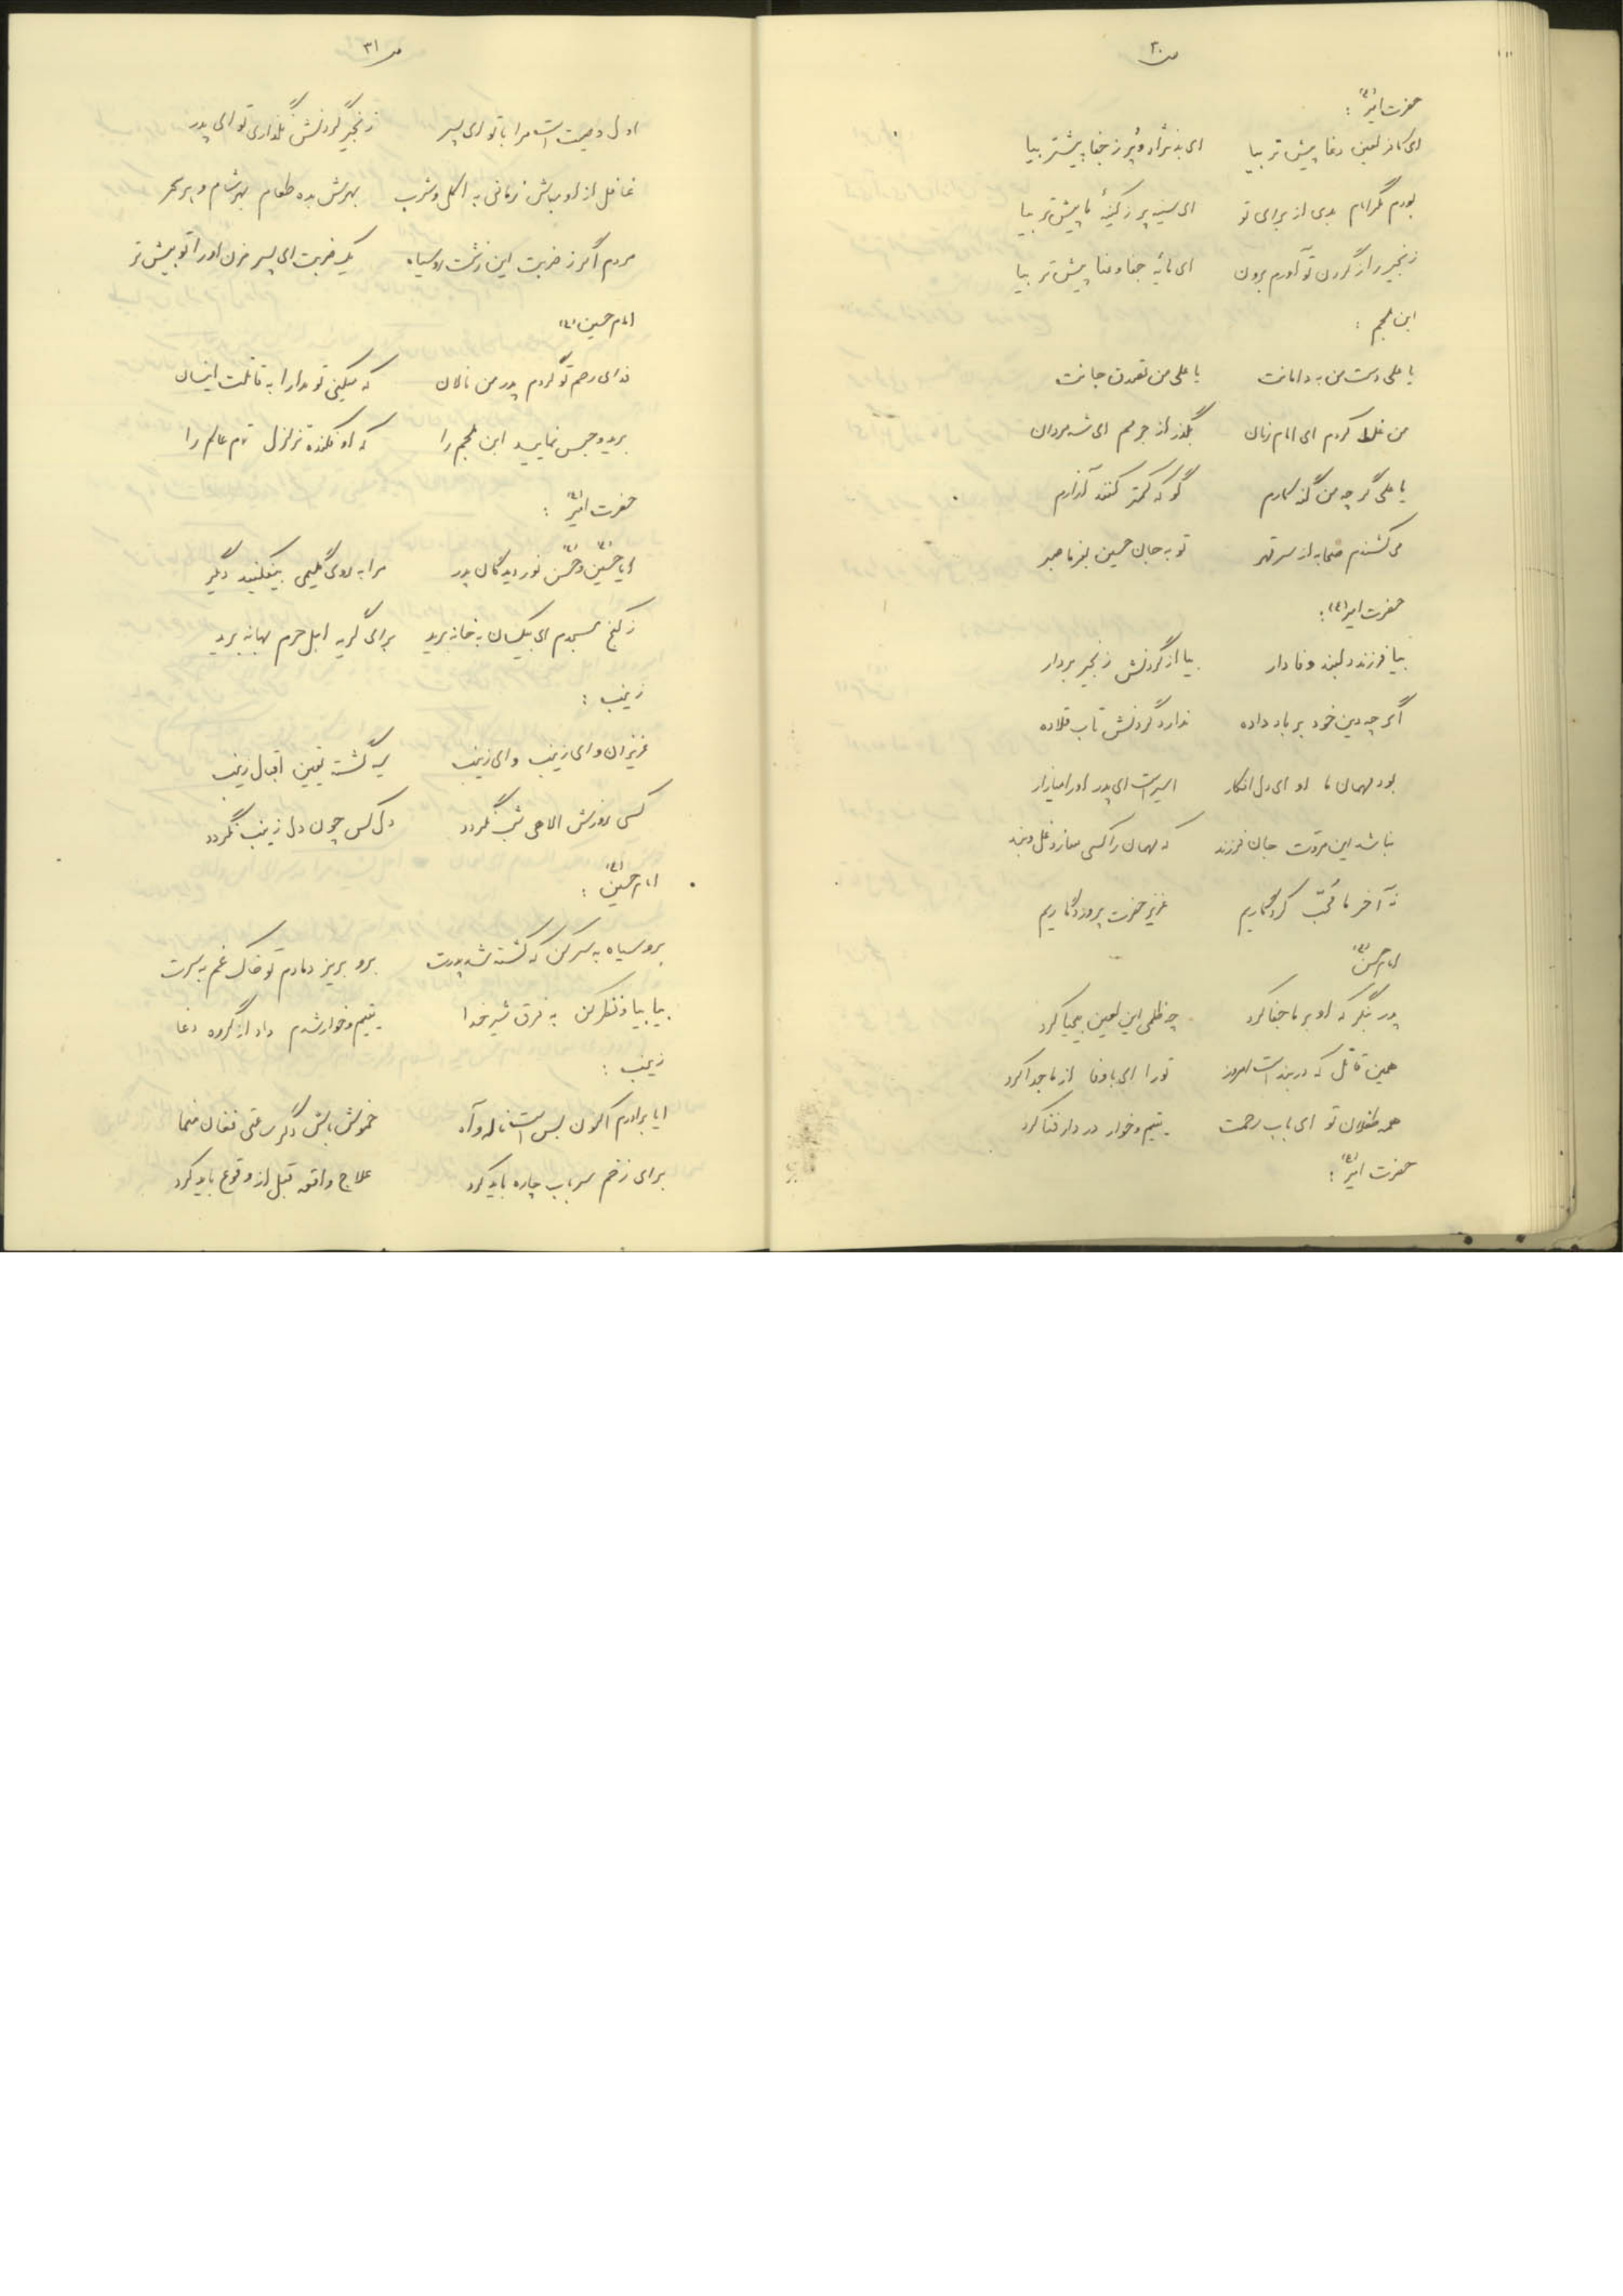 ص ۳۰
حضرت امیر (ع) :
ای کافر لعین دغا پیش تر بیا    ای بد نژاد و پُر ز جفا پیشتر بیا
بودم مگر امام بدی از برای تو    ای سینه پر ز کینهٔ ما پیش تر بیا
زنجیر را ز گردن تو آورم برون    ای مایهٔ جفا و فنا پیش تر بیا
ابن ملجم :
یا علی دست من به دامانت    یا علی من تصدق جانت
من غلط کردم ای امام زمان    بگذر از جرمم ای شه مردان
یا علی گر چه من گنه کارم    گو که کمتر کنند آزارم
می کشندم صحابه از سر قهر    تو به جان حسین بفرما صبر
حضرت امیر (ع) :
بیا فرزند دلبند وفادار    بیا از گردنش زنجیر بردار
اگر چه دین خود بر باد داده    ندارد گردنش تاب قلاده
بود مهمان ما او ای دل افکار    اسیر است ای پدر او را میازار
نباشد این مروت جان فرزند    که مهمان را کسی سازد غل و بند
نه آخر ما محب کردگاریم    عزیز حضرت پروردگاریم
امام حسن (ع)
پدر بنگر که او بر ما جفا کرد    چه ظلمی این لعین بیحیا کرد
همین قاتل که در بند است امروز    تو را ای با وفا از ما جدا کرد
همه طفلان تو ای باب رحمت    یتیم و خوار در دار فنا کرد
حضرت امیر (ع) :
ص ۳۱
اول وصیت است مرا با تو ای پسر    زنجیر گردنش نگذاری تو ای پدر
غافل از او مباش زمانی به اکل و شرب    بهرش بده طعام بهر شام و هر سحر
مردم اگر ز ضربت این زشت روسیاه    یک ضربت ای پسر مزن او را تو بیش تر
امام حسین (ع)
فدای رحم تو گردم پدر من نالان    که میکنی تو مدارا به قاتلت اینسان
برید و حبس نمایید ابن ملجم را    که او فکنده تزلزل تمام عالم را
حضرت امیر (ع) :
ایا حسین (ع) و حسن (ع) نور دیدگان پدر    مرا به روی گلیمی بیفکنید دگر
ز کنج مسجدم ای بیکسان به خانه برید    برای گریه اهل حرم بهانه برید
زینب :
عزیزان وای زینب وای زینب    سیه گشته یقین اقبال زینب
کسی روزش الاهی شب نگردد    دل کس چون دل زینب نگردد
امام حسین (ع) :
برو سیاه به سر کن که کشته شد پدرت    برو بریز دمادم تو خاک غم به سرت
بیا بیا و نظر کن به فرق شیر خدا    یتیم و خوار شدم داد از گروه دغا
زینب :
ایا برادرم اکنون بس است ناله و آه    خموش باش دگر ساعتی فغان منما
برای زخم سر باب چاره باید کرد    علاج واقعه قبل از وقوع باید کرد